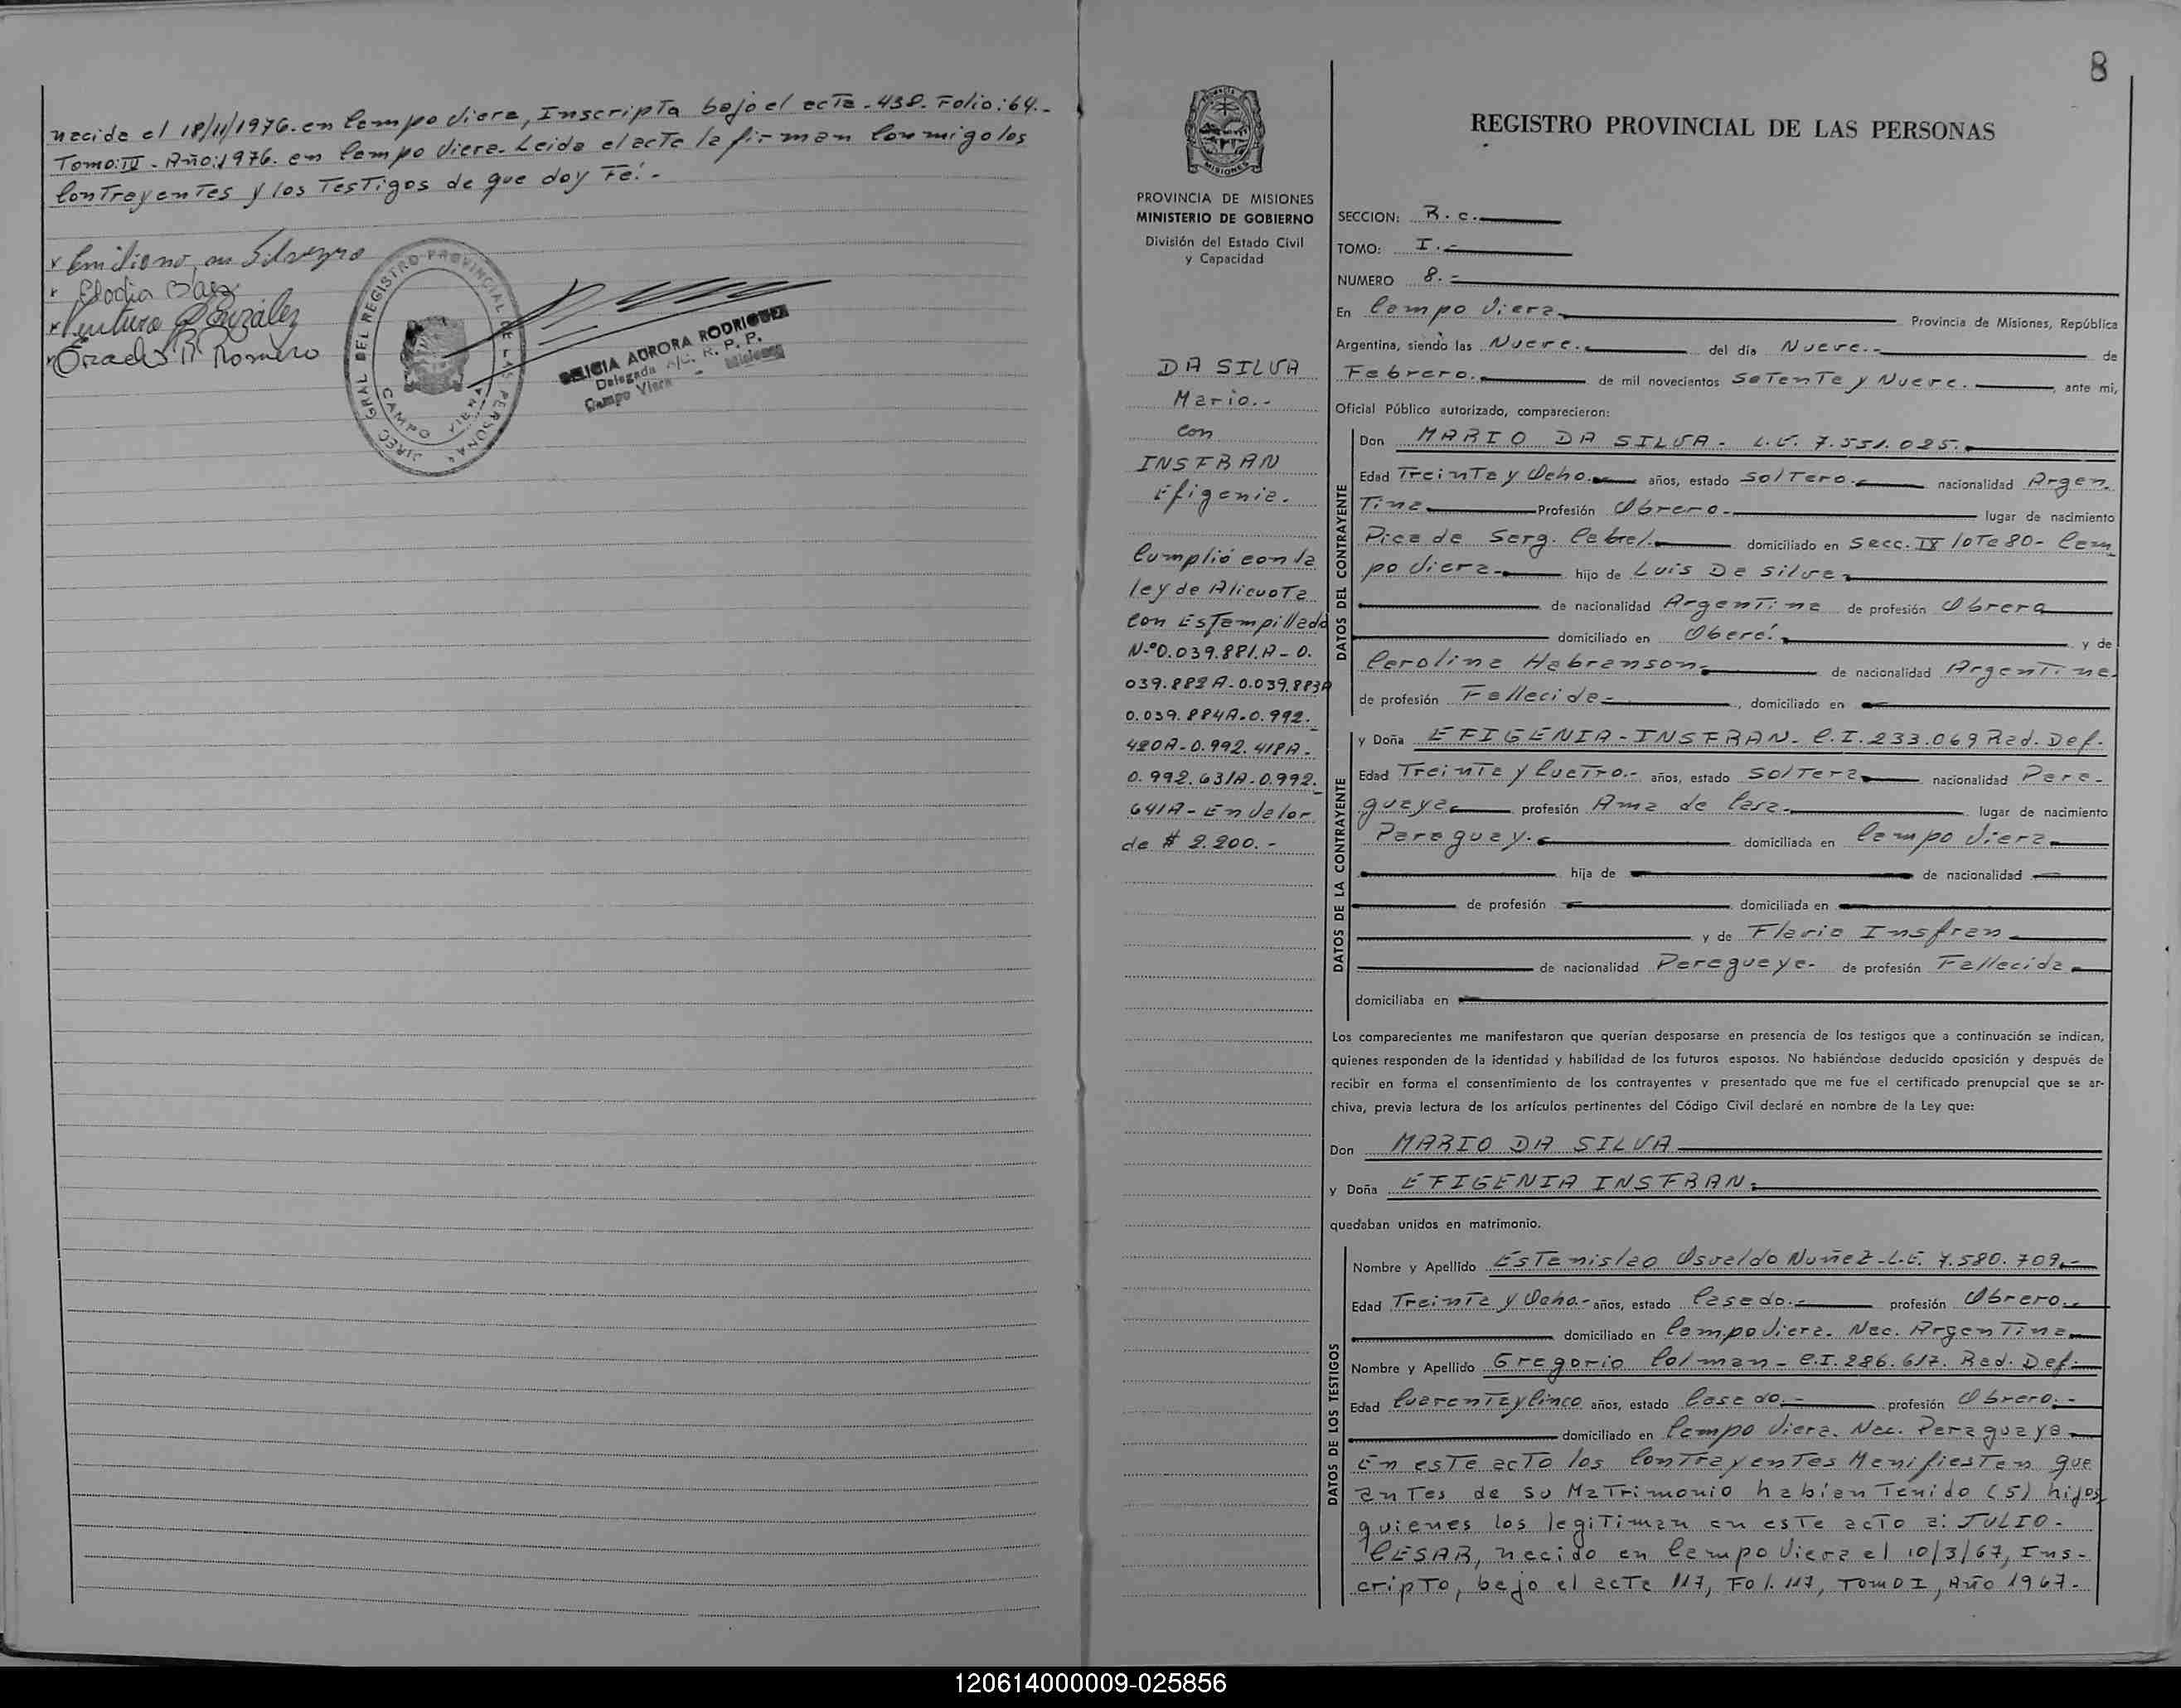 nacida el 18/11/1976. en Campo Viera, Inscripta bajo el acta - 438. Folio: 64.-
Tomo: IV - Año: 1976. en Campo Viera. Leida el acta la firman conmigo los
Contrayentes y los Testigos de que doy Fé. -
Elodia Baez
Ventura González
Romero
GRAL DEL REGISTRO PROVINCIAL DE LAS PERSONAS
CAMPO VIERA
AURORA RODRIGUEZ
Delegada A/C. R. P. P.
Campo Viera - Misiones
8
MISIONES
PROVINCIA DE MISIONES
MINISTERIO DE GOBIERNO
División del Estado Civil
y Capacidad
DA SILVA
Mario.-
con
INSFRAN
Efigenia.
Cumplió con la
ley de Alicuota
con Estampillado
N.º 0.039.881.A - 0.
039.882 A - 0.039.883A
0.039.884A - 0.992.
420A - 0.992.418A -
0.992.631A - 0.992.
641A - En Valor
de $ 2.200. -
REGISTRO PROVINCIAL DE LAS PERSONAS
SECCION: R. c.
TOMO: I. -
NUMERO 8. -
En Campo Viera Provincia de Misiones, República
Argentina, siendo las Nueve. del día Nueve. - de
Febrero. de mil novecientos Setenta y Nueve. , ante mi,
Oficial Público autorizado, comparecieron:
DATOS DEL CONTRAYENTE
Don MARIO DA SILVA - L.E. 7.551.025.
Edad Treinta y Ocho. años, estado Soltero. nacionalidad Argen.
Tina Profesión Obrero - lugar de nacimiento
Picada Serg. Cabral. domiciliado en Secc. IX lote 80 - Cam
po Viera hijo de Luis Da Silva
de nacionalidad Argentina de profesión Obrera
domiciliado en Oberá. y de
Carolina Habranson de nacionalidad Argentina
de profesión Fallecida - , domiciliado en
DATOS DE LA CONTRAYENTE
y Doña EFIGENIA - INSFRAN - C.I. 233.069 Rad. Def.
Edad Treinta y Cuatro.- años, estado Soltera nacionalidad Para-
guaya profesión Ama de Casa lugar de nacimiento
Paraguay. domiciliada en Campo Viera
hija de de nacionalidad
de profesión domiciliada en
y de Flavia Insfran
de nacionalidad Paraguaya- de profesión Fallecida
domiciliaba en
Los comparecientes me manifestaron que querían desposarse en presencia de los testigos que a continuación se indican,
quienes responden de la identidad y habilidad de los futuros esposos. No habiéndose deducido oposición y después de
recibir en forma el consentimiento de los contrayentes y presentado que me fue el certificado prenupcial que se ar-
chiva, previa lectura de los artículos pertinentes del Código Civil declaré en nombre de la Ley que:
Don MARIO DA SILVA
y Doña EFIGENIA INSFRAN.
quedaban unidos en matrimonio.
DATOS DE LOS TESTIGOS
Nombre y Apellido Estanislao Osvaldo Nuñez - L.E. 7.580.709.-
Edad Treinta y Ocho.- años, estado Casado. - profesión Obrero.-
domiciliado en Campo Viera. Nac. Argentina
Nombre y Apellido Gregorio Colman - C.I. 286.617. Rad. Def.
Edad Cuarenta y Cinco años, estado Casado. - profesión Obrero. -
domiciliado en Campo Viera. Nac. Paraguaya
En este acto los Contrayentes Manifiestan que
antes de su Matrimonio habian Tenido (5) hijos
quienes los legitiman en este acto a: JULIO -
CESAR, nacido en Campo Viera el 10/3/67, Ins-
cripto, bajo el acta 117, Fol. 117, Tomo I, Año 1967.-
120614000009-025856